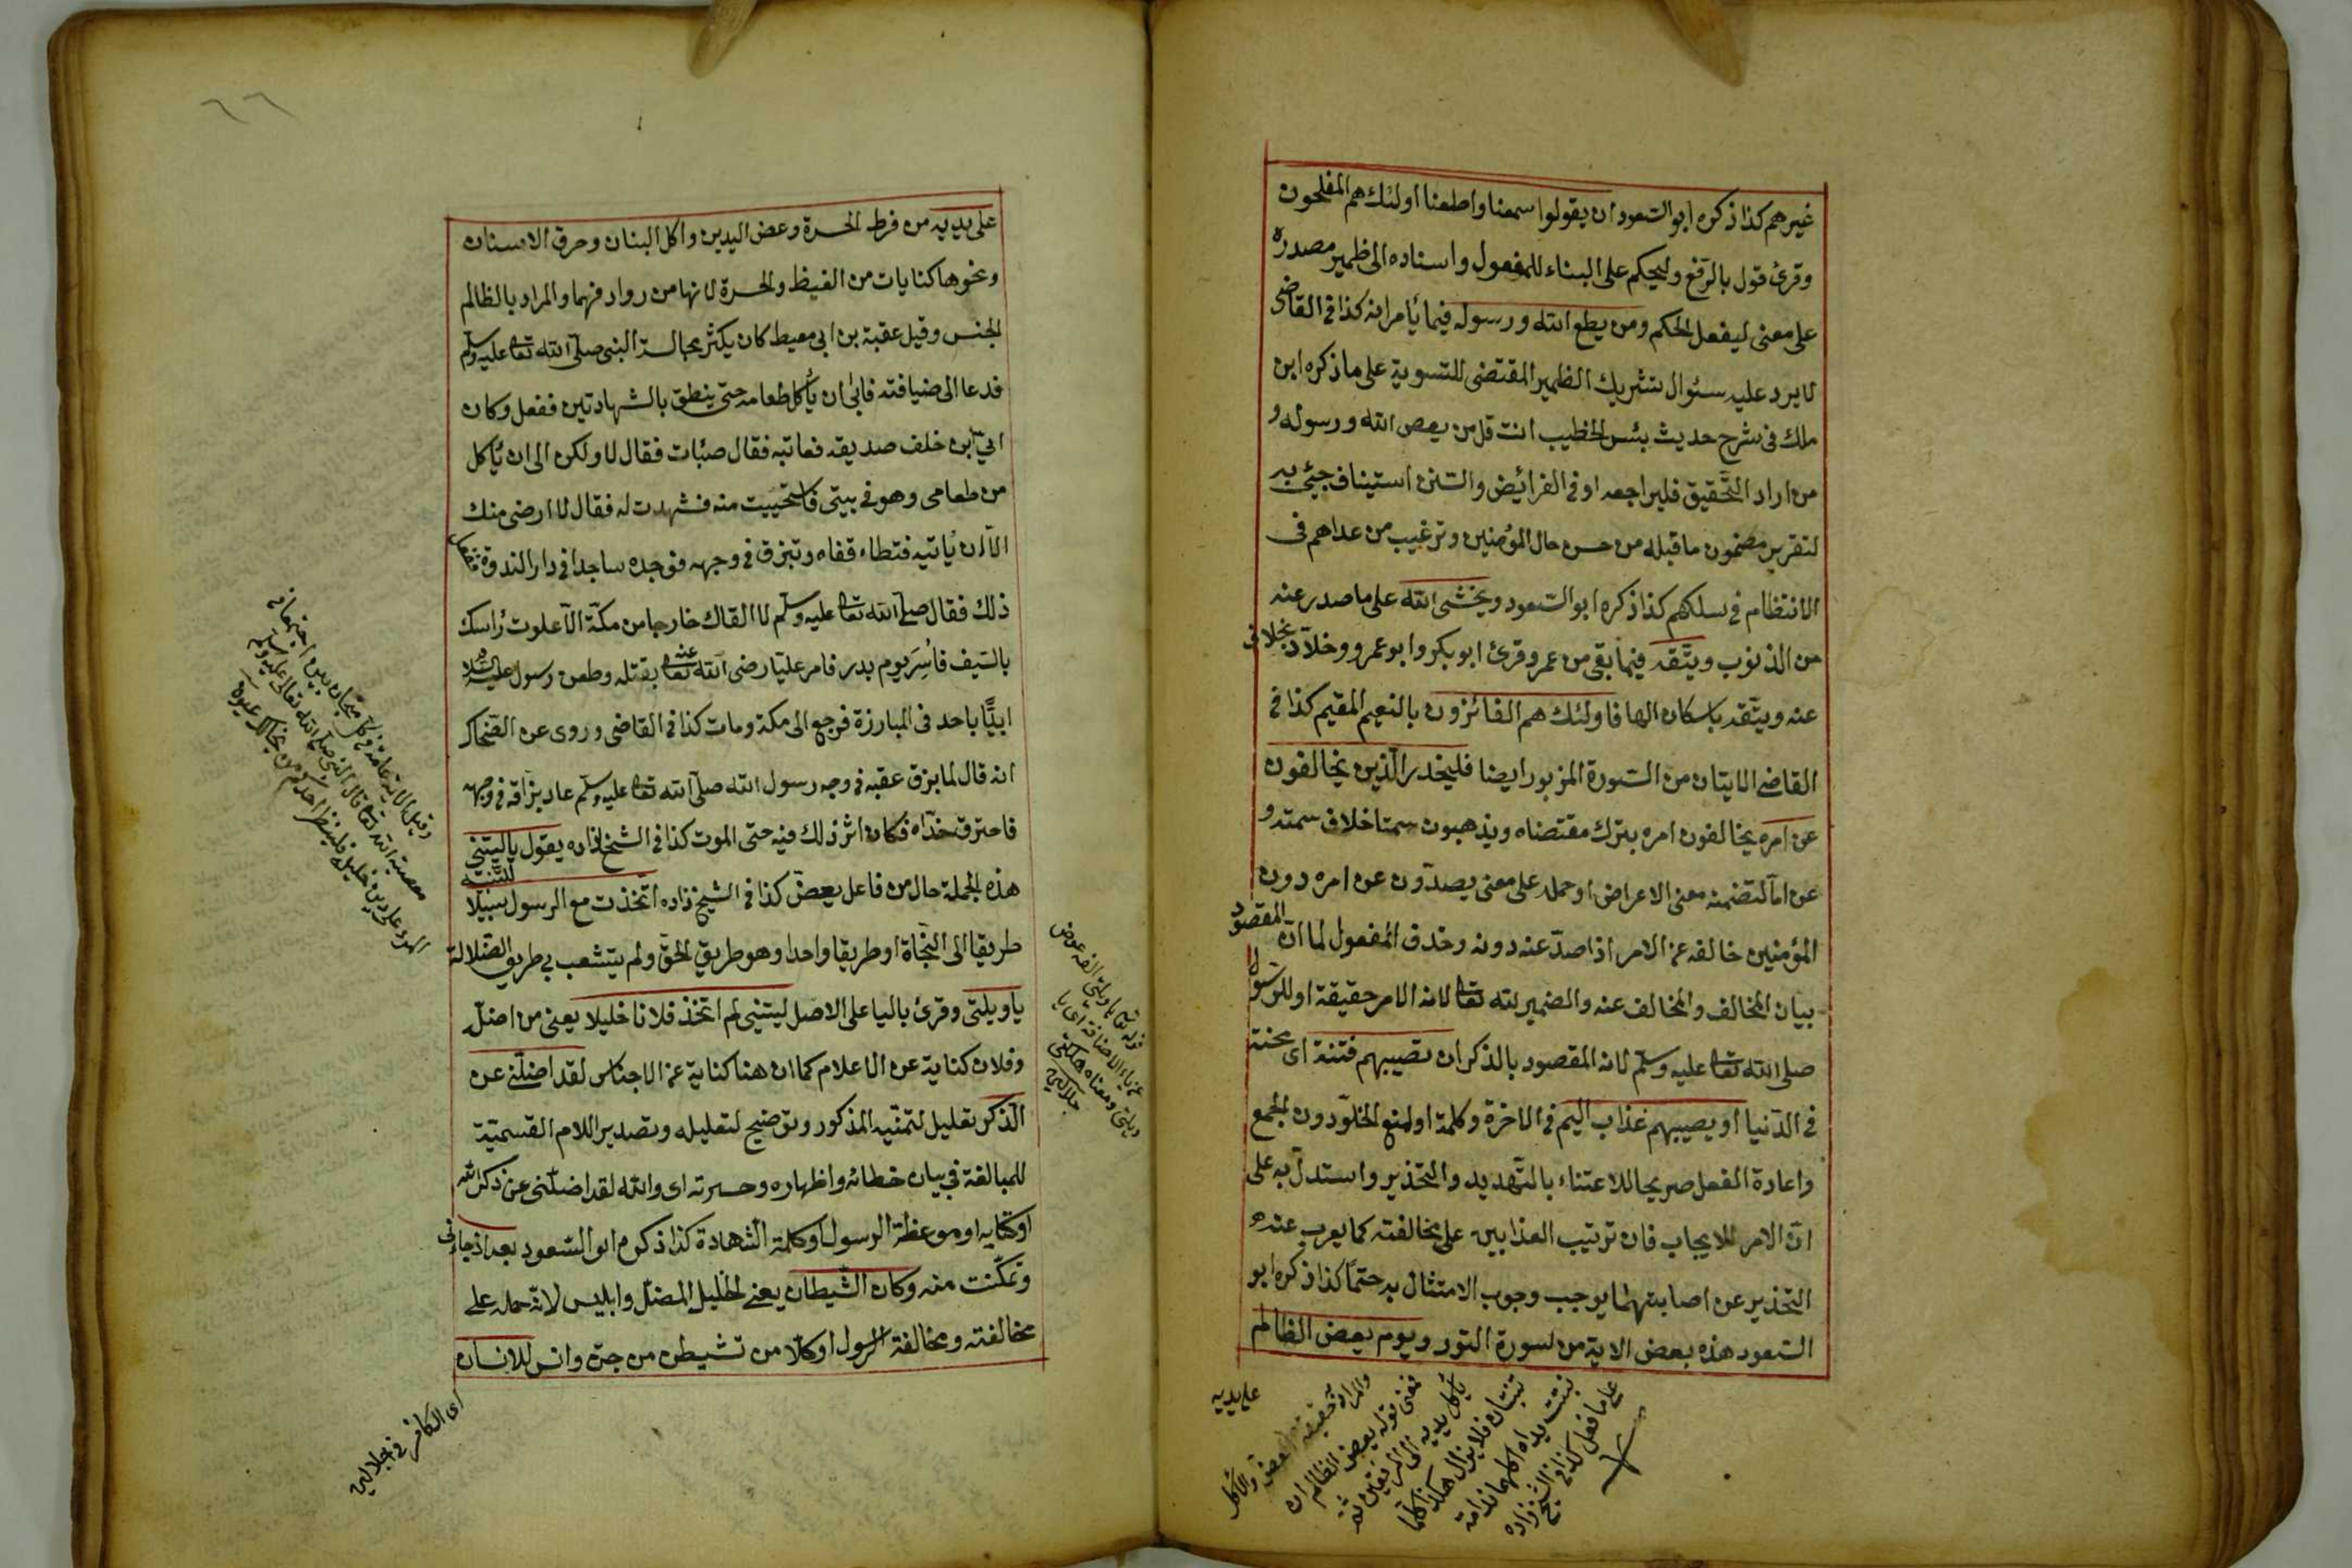 غيرهم كذا ذكره ابو السعود ان يقولوا سمعنا واطعنا اولئك هم المفلحون
وقرئ قول بالرفع وليحكم على البناء للمفعول واسناده الى ظمير مصدره
على معنى ليفعل الحكم ومن يطع الله ورسوله فيما يأمرانه كذا في القاضى
لا يرد عليه سئوال تشريك الظمير المقتضى للتسوية على ما ذكره ابن
ملك فى شرح حديث بئس الخطيب انت قل من يعص الله ورسوله و
من اراد التحقيق فليراجعه او فى الفرائيض والسنن استيناف جيئ به
لتقرير مضمون ما قبله من حسن حال المؤمنين وترغيب من عداهم فى
الانتظام فى سلكهم كذا ذكره ابو السعود ويخشى الله على ما صدر عنه
من الذنوب ويتقه فيما بقى من عمره وقرئ ابو بكر وابو عمرو وخلاد بخلاف
عنه ويتقه باسكان الها فاولئك هم الفائزون بالنعيم المقيم كذا فى
القاضى الايتان من السورة المزبور ايضا فليحذر الذين يخالفون
عن امره يخالفون امره بترك مقتضاه ويذهبون سمتا خلاف سمته و
عن اما لتضمنه معنى الاعراض او حمله على معنى يصدون عن امره دون
المؤمنين خالفه عن الامر اذا صد عنه دونه وحذف المفعول لما ان المقصود
بيان المخالف والمخالف عنه والضمير لله تعالى لانه الامر حقيقة او للرسول
صلى الله تعالى عليه وسلم لانه المقصود بالذكر ان تصيبهم فتنة اى محنة
فى الدنيا او يصيبهم عذاب اليم فى الاخرة وكلمة او لمنع الخلو دون الجمع
واعادة الفعل صريحا للاعتناء بالتهديد والتحذير واستدل به على
ان الامر للايجاب فان ترتيب العذابين على مخالفته كما يعرب عنه
التحذير عن اصابتهما يوجب وجوب الامتثال به حتمًا كذا ذكره ابو
السعود هذه بعض الاية من سورة النور ويوم يعض الظالم
على يديه
والمراد به حقيقة العض والاكل
فمعنى قوله يعض الظالم ان
يأكل يديه الى المرفقين ثم
تنبتان فلا يزال هكذا كلما
نبتت يداه اكلهما ندامة
على ما فعل كذا فى الشيخ زاده
٦٦
على يديه من فرط الحسرة وعض اليدين واكل البنان وحرق الاسنان
ونحوها كنايات من الغيظ والحسرة لانها من روادفهما والمراد بالظالم
الجنس وقيل عقبة بن ابى معيط كان يكثر مجالسة النبى صلى الله تعالى عليه وسلم
فدعا الى ضيافته فابى ان يأكل طعامه حتى ينطق بالشهادتين ففعل وكان
ابيّ ابن خلف صديقه فعاتبه فقال صبأت فقال لا ولكن الى ان يأكل
من طعامى وهو فى بيتى فاستحييت منه فشهدت له فقال لا ارضى منك
الا ان يأتيه فتطاء قفاه وتبزق فى وجهه فوجده ساجدا فى دار الندوة ففعل
ذلك فقال صلى الله تعالى عليه وسلم لا القاك خارجا من مكة الا علوت رأسك
بالسيف فأسر يوم بدر فامر عليا رضى الله تعالى عنه بقتله وطعن رسول عليه السلام
ابيًّا باحد فى المبارزة فرجع الى مكة ومات كذا فى القاضى وروى عن الضحاك
انه قال لما بزق عقبه فى وجه رسول الله صلى الله تعالى عليه وسلم عاد بزاقه فى وجهه
فاحترق خداه فكان اثر ذلك فيه حتى الموت كذا فى الشيخ زاده يقول يا ليتنى
للتنبيه
هذه الجملة حال من فاعل يعض كذا فى الشيخ زاده اتخذت مع الرسول سبيلا
طريقا الى النجاة او طريقا واحدا وهو طريق الحق ولم يتشعب بى طريق الضلالة
يا ويلتى وقرئ باليا على الاصل ليتنى لم اتخذ فلانا خليلا يعنى من اضل
وفلان كناية عن الاعلام كما ان هنا كناية عن الاجناس لقد اضلنى عن
الذكر تعليل لتمنيه المذكور وتوضيح لتعليله وتصدير اللام القسمية
للمبالغة فى بيان خطائه واظهاره وحسرته اى والله لقد اضلنى عن ذكر الله
او كتابه او موعظة الرسول او كلمة الشهادة كذا ذكره ابو السعود بعد اذ جاءنى
وتمكنت منه وكان الشيطان يعنى الخليل المضل وابليس لانه حمله على
مخالفته ومخالفة الرسول او كلا من تشيطن من جن وانس للانسان
وقيل الاية عامة فى كل متحابين اجتمعا فى
معصية الله تعالى قال النبى صلى الله تعالى عليه وسلم
المرء على دين خليله فلينظر احدكم من يخالل
قوله تعالى يا ويلتى الفه عوض
عن ياء الاضافة اى يا
ويلتى ومعناه هلكتى
جلالين
اى الكافر فى الجلالين